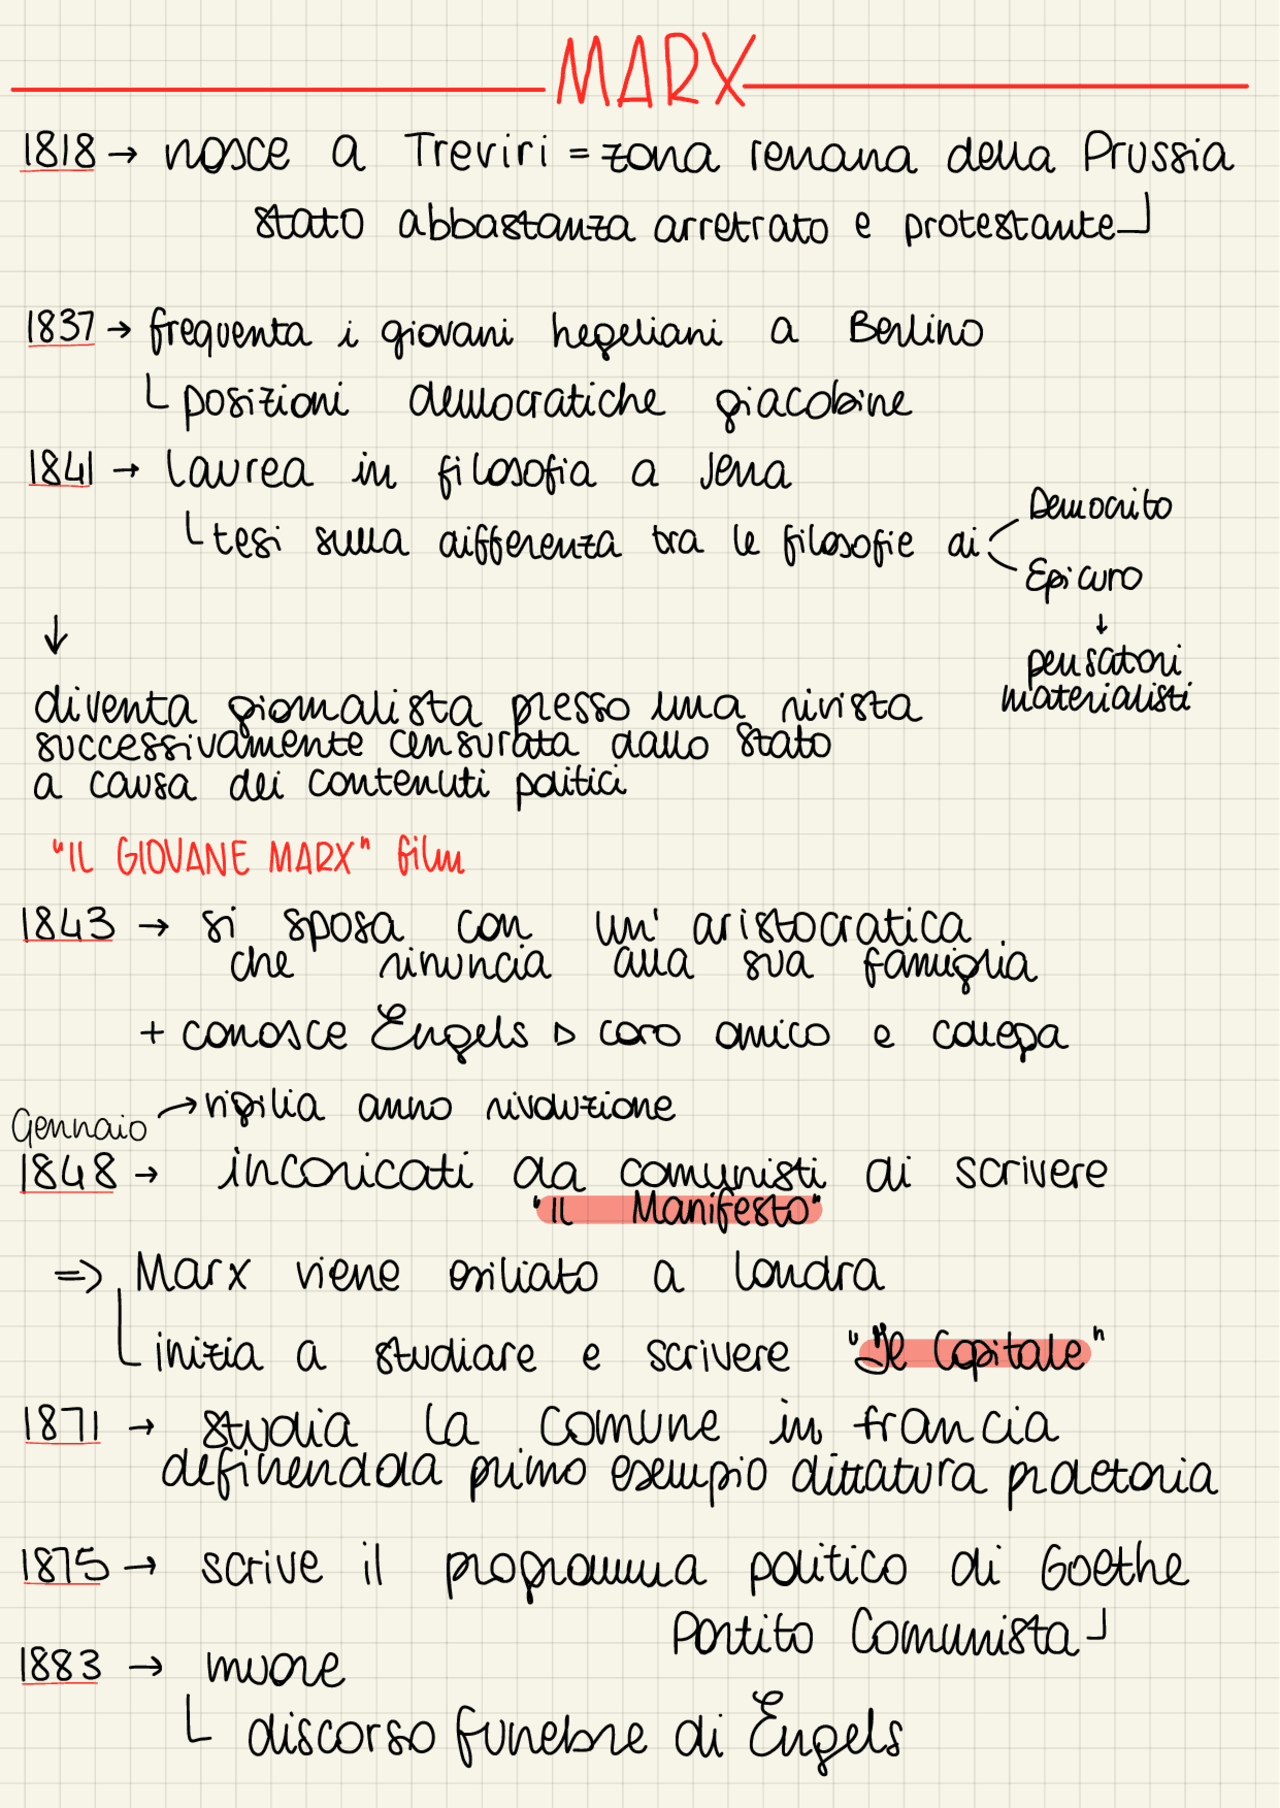 MARX
1818 → nasce a Treviri = zona renana della Prussia
stato abbastanza arretrato e protestante
1837 → frequenta i giovani hegeliani a Berlino
posizioni democratiche giacobine
1841 → laurea in filosofia a Jena
tesi sulla differenza tra le filosofie di
Democrito
Epicuro
↓
pensatori
materialisti
↓
diventa giornalista presso una rivista
successivamente censurata dallo stato
a causa dei contenuti politici
"IL GIOVANE MARX" film
1843 → si sposa con un' aristocratica
che rinuncia alla sua famiglia
+ conosce Engels ▷ caro amico e collega
→ vigilia anno rivoluzione
Gennaio
1848 → incaricati da comunisti di scrivere
"Il Manifesto"
=> Marx viene esiliato a Londra
inizia a studiare e scrivere "Il Capitale"
1871 → studia la Comune in francia
definendola primo esempio dittatura proletaria
1875 → scrive il programma politico di Goethe
Partito Comunista
1883 → muore
discorso funebre di Engels